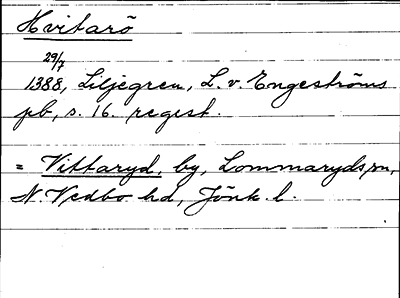 Hvitarö
29/7
1388, Liljegren, L. v. Engeströms
pb, s. 16. regest.
= Vittaryd, by, Lommaryds sn,
N. Vedbo hd, Jönk. l.